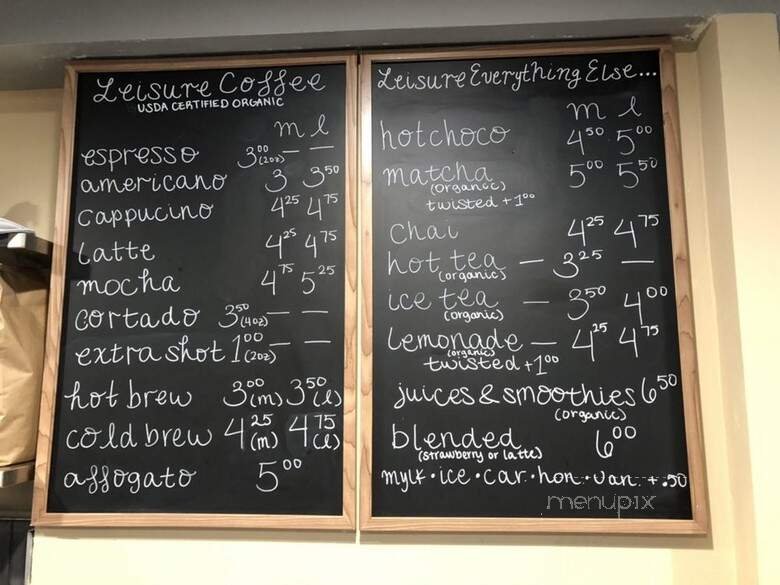 Leisure Coffee
USDA CERTIFIED ORGANIC
m l
espresso 3⁰⁰ (2oz) — —
americano 3 3⁵⁰
cappucino 4²⁵ 4⁷⁵
latte 4²⁵ 4⁷⁵
mocha 4⁷⁵ 5²⁵
cortado 3⁵⁰ (4oz) — —
extra shot 1⁰⁰ (2oz) — —
hot brew 3⁰⁰ (m) 3⁵⁰ (l)
cold brew 4²⁵ (m) 4⁷⁵ (l)
affogato 5⁰⁰
Leisure Everything Else...
m l
hot choco 4⁵⁰ 5⁰⁰
matcha 5⁰⁰ 5⁵⁰
(organic)
twisted +1⁰⁰
chai 4²⁵ 4⁷⁵
hot tea — 3²⁵ —
(organic)
ice tea — 3⁵⁰ 4⁰⁰
(organic)
lemonade — 4²⁵ 4⁷⁵
(organic)
twisted +1⁰⁰
juices & smoothies 6⁵⁰
(organic)
blended 6⁰⁰
(strawberry or latte)
mylk · ice · car · hon · van · +.50
menupix